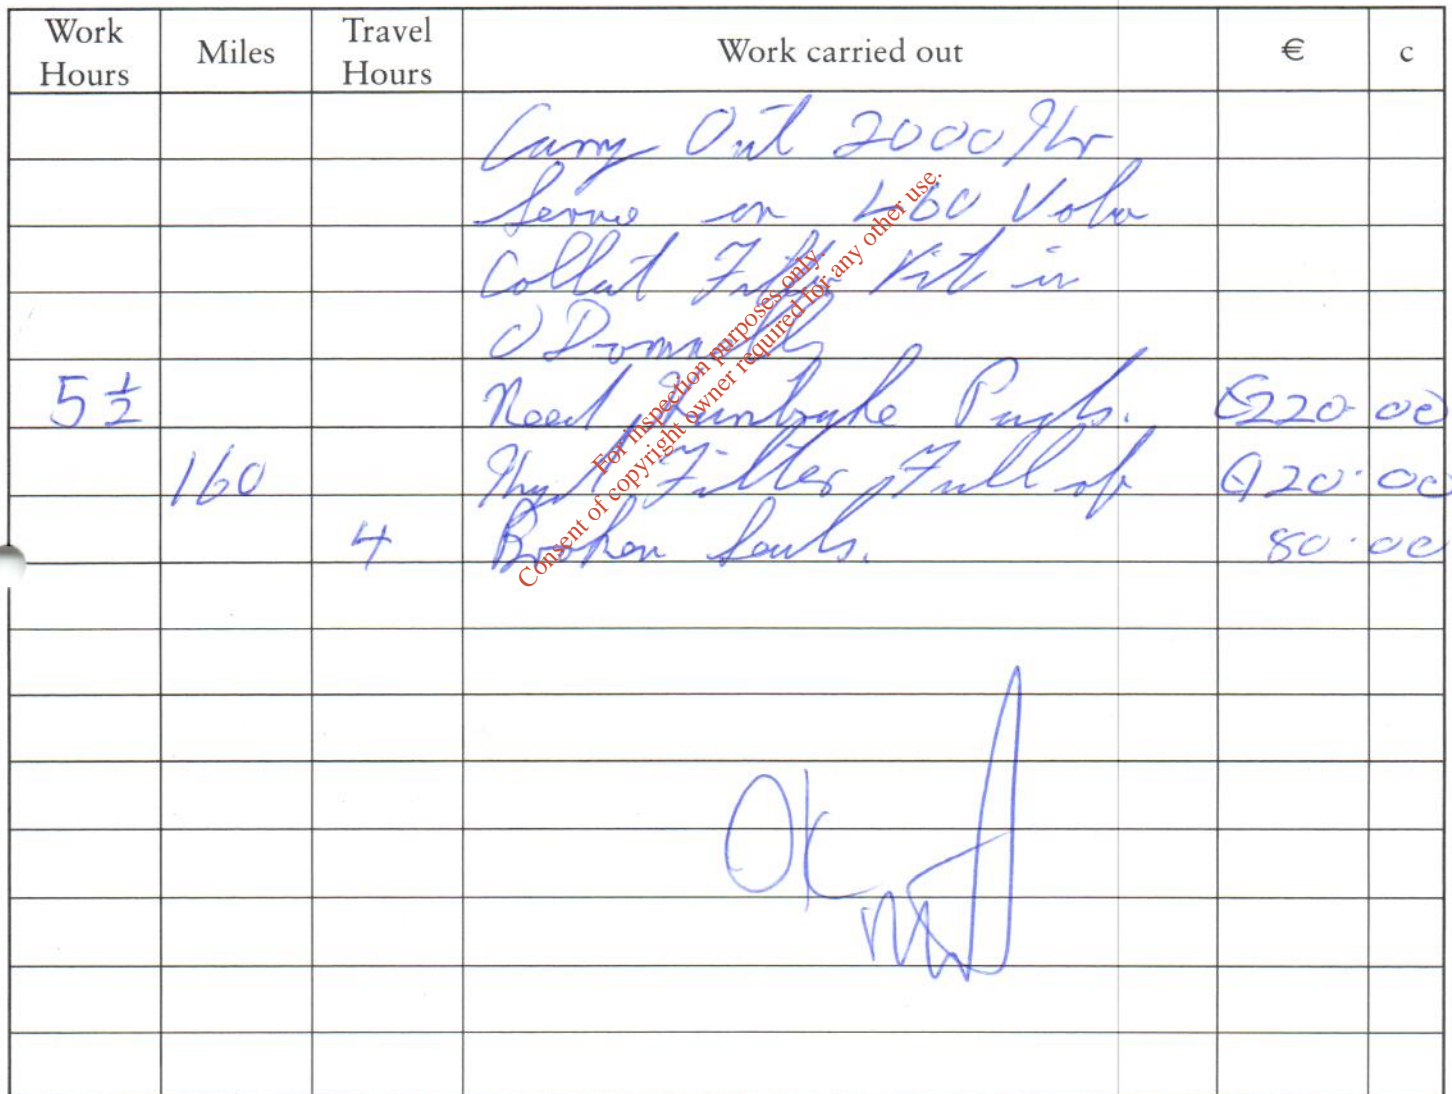 Work Hours Miles Travel Hours Work carried out € c
Carry Out 2000 Hr
Service on L60 Volvo
Collect Filter Kit in
O Donnells
5 ½ Need Handbrake Pads. €220.00
160 Hyd Filter Full of €120.00
4 Broken Seals. 80.00
For inspection purposes only.
Consent of copyright owner required for any other use.
OK